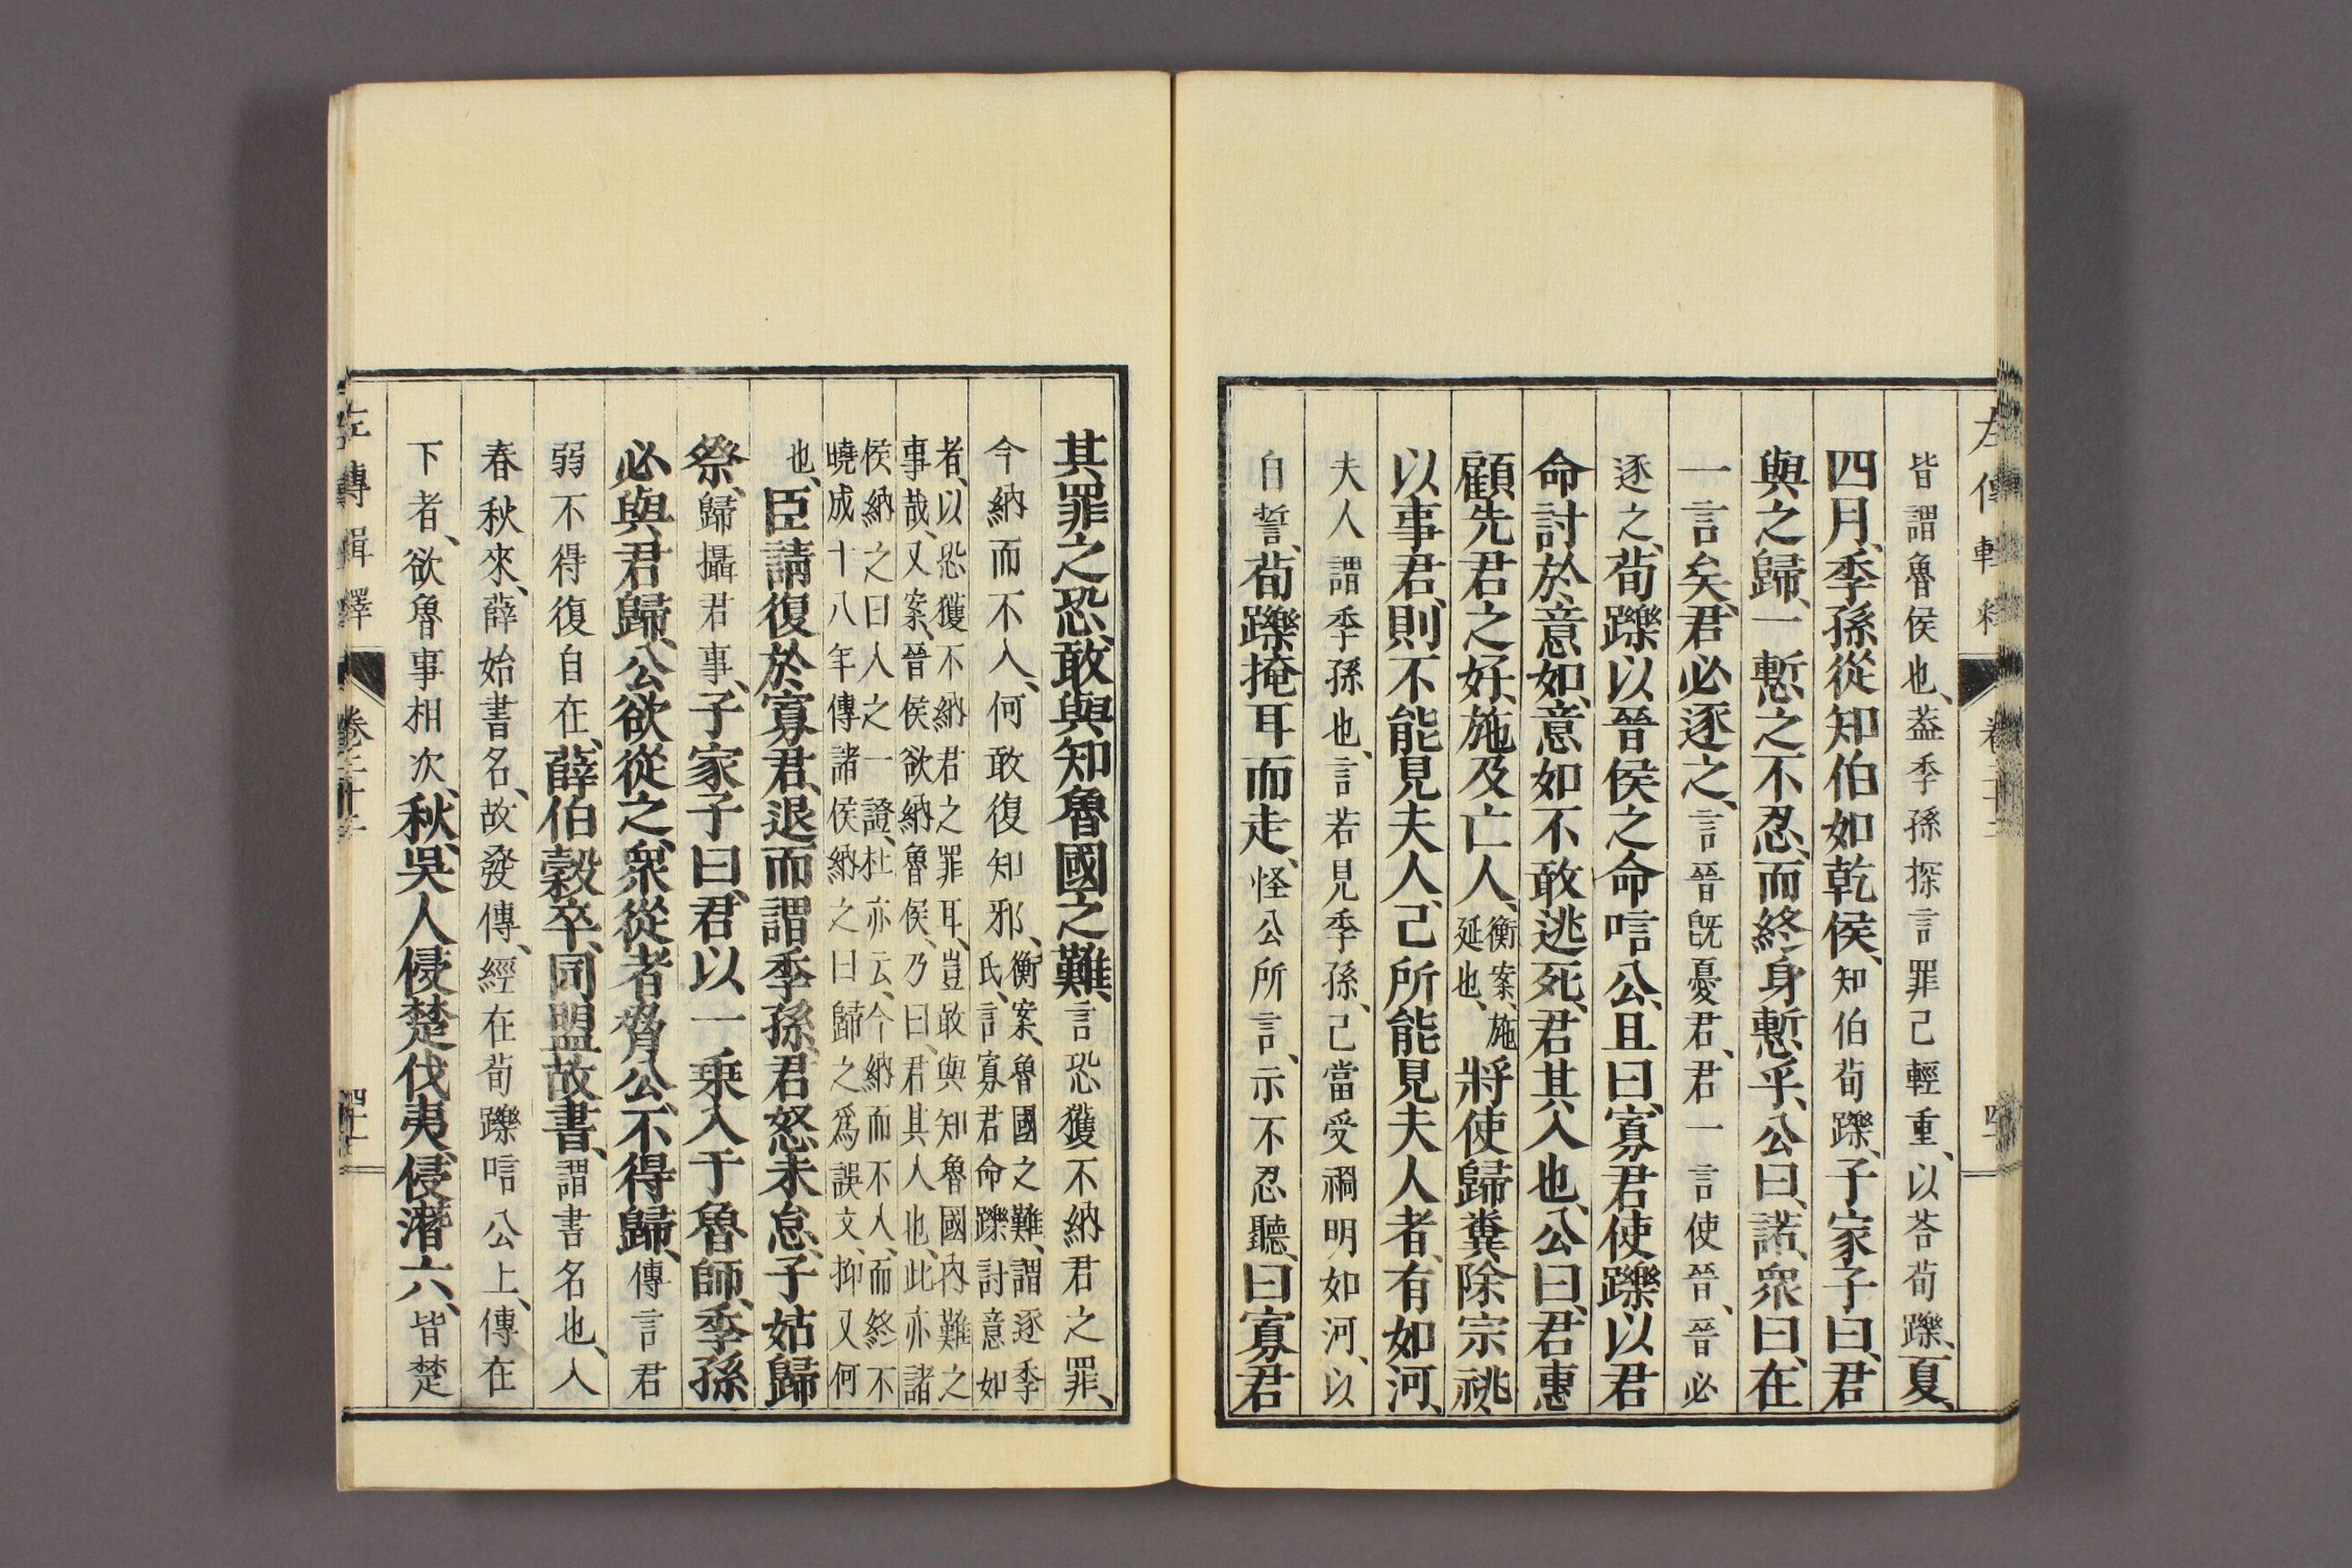 皆謂魯侯也、葢季孫探言罪己輕重、以荅荀躒、夏、
四月、季孫從知伯如乾侯、知伯荀躒、子家子曰、君
與之歸、一慙之不忍、而終身慙乎、公曰、諾、衆曰、在
一言矣、君必逐之、言晉旣憂君、君一言使晉、晉必
逐之、荀躒以晉侯之命唁公、且曰、寡君使躒以君
命討於意如、意如不敢逃死、君其入也、公曰、君惠
顧先君之好、施及亡人、衡案、施
延也、將使歸糞除宗祧、
以事君、則不能見夫人、己所能見夫人者、有如河、
夫人謂季孫也、言若見季孫、己當受禍明如河、以
自誓、荀躒掩耳而走、怪公所言、示不忍聽、曰寡君
其罪之恐、敢與知魯國之難、言恐獲不納君之罪、
今納而不入、何敢復知邪、衡案、魯國之難、謂逐季
氏、言寡君命躒討意如
者、以恐獲不納君之罪耳、豈敢與知魯國內難之
事哉、又案、晉侯欲納魯侯、乃曰、君其入也、此亦諸
侯納之曰入之一證、杜亦云、今納而不入、而終不
曉成十八年傳諸侯納之曰歸之爲誤文、抑又何
也、臣請復於寡君、退而謂季孫、君怒未怠、子姑歸
祭、歸攝君事、子家子曰、君以一乘入于魯師、季孫
必與君歸、公欲從之、衆從者脅公、不得歸、傳言君
弱不得復自在、薛伯穀卒、同盟故書、謂書名也、入
春秋來、薛始書名、故發傳、經在荀躒唁公上、傳在
下者、欲魯事相次、秋、吳人侵楚伐夷、侵潛六、皆楚
左傳輯釋
卷二十二
四十一